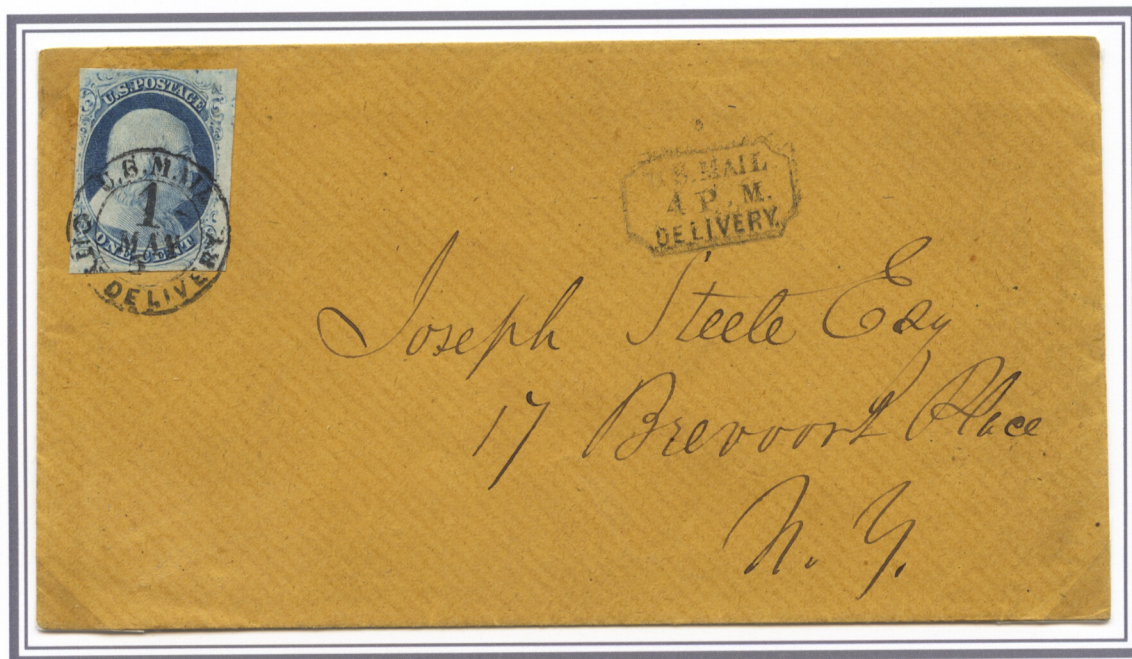 U.S. POSTAGE
ONE CENT
U.S. MAIL
1
MAR
CITY DELIVERY
U.S. MAIL
4 P. M.
DELIVERY
Joseph Steele Esq
17 Brevoort Place
N. Y.